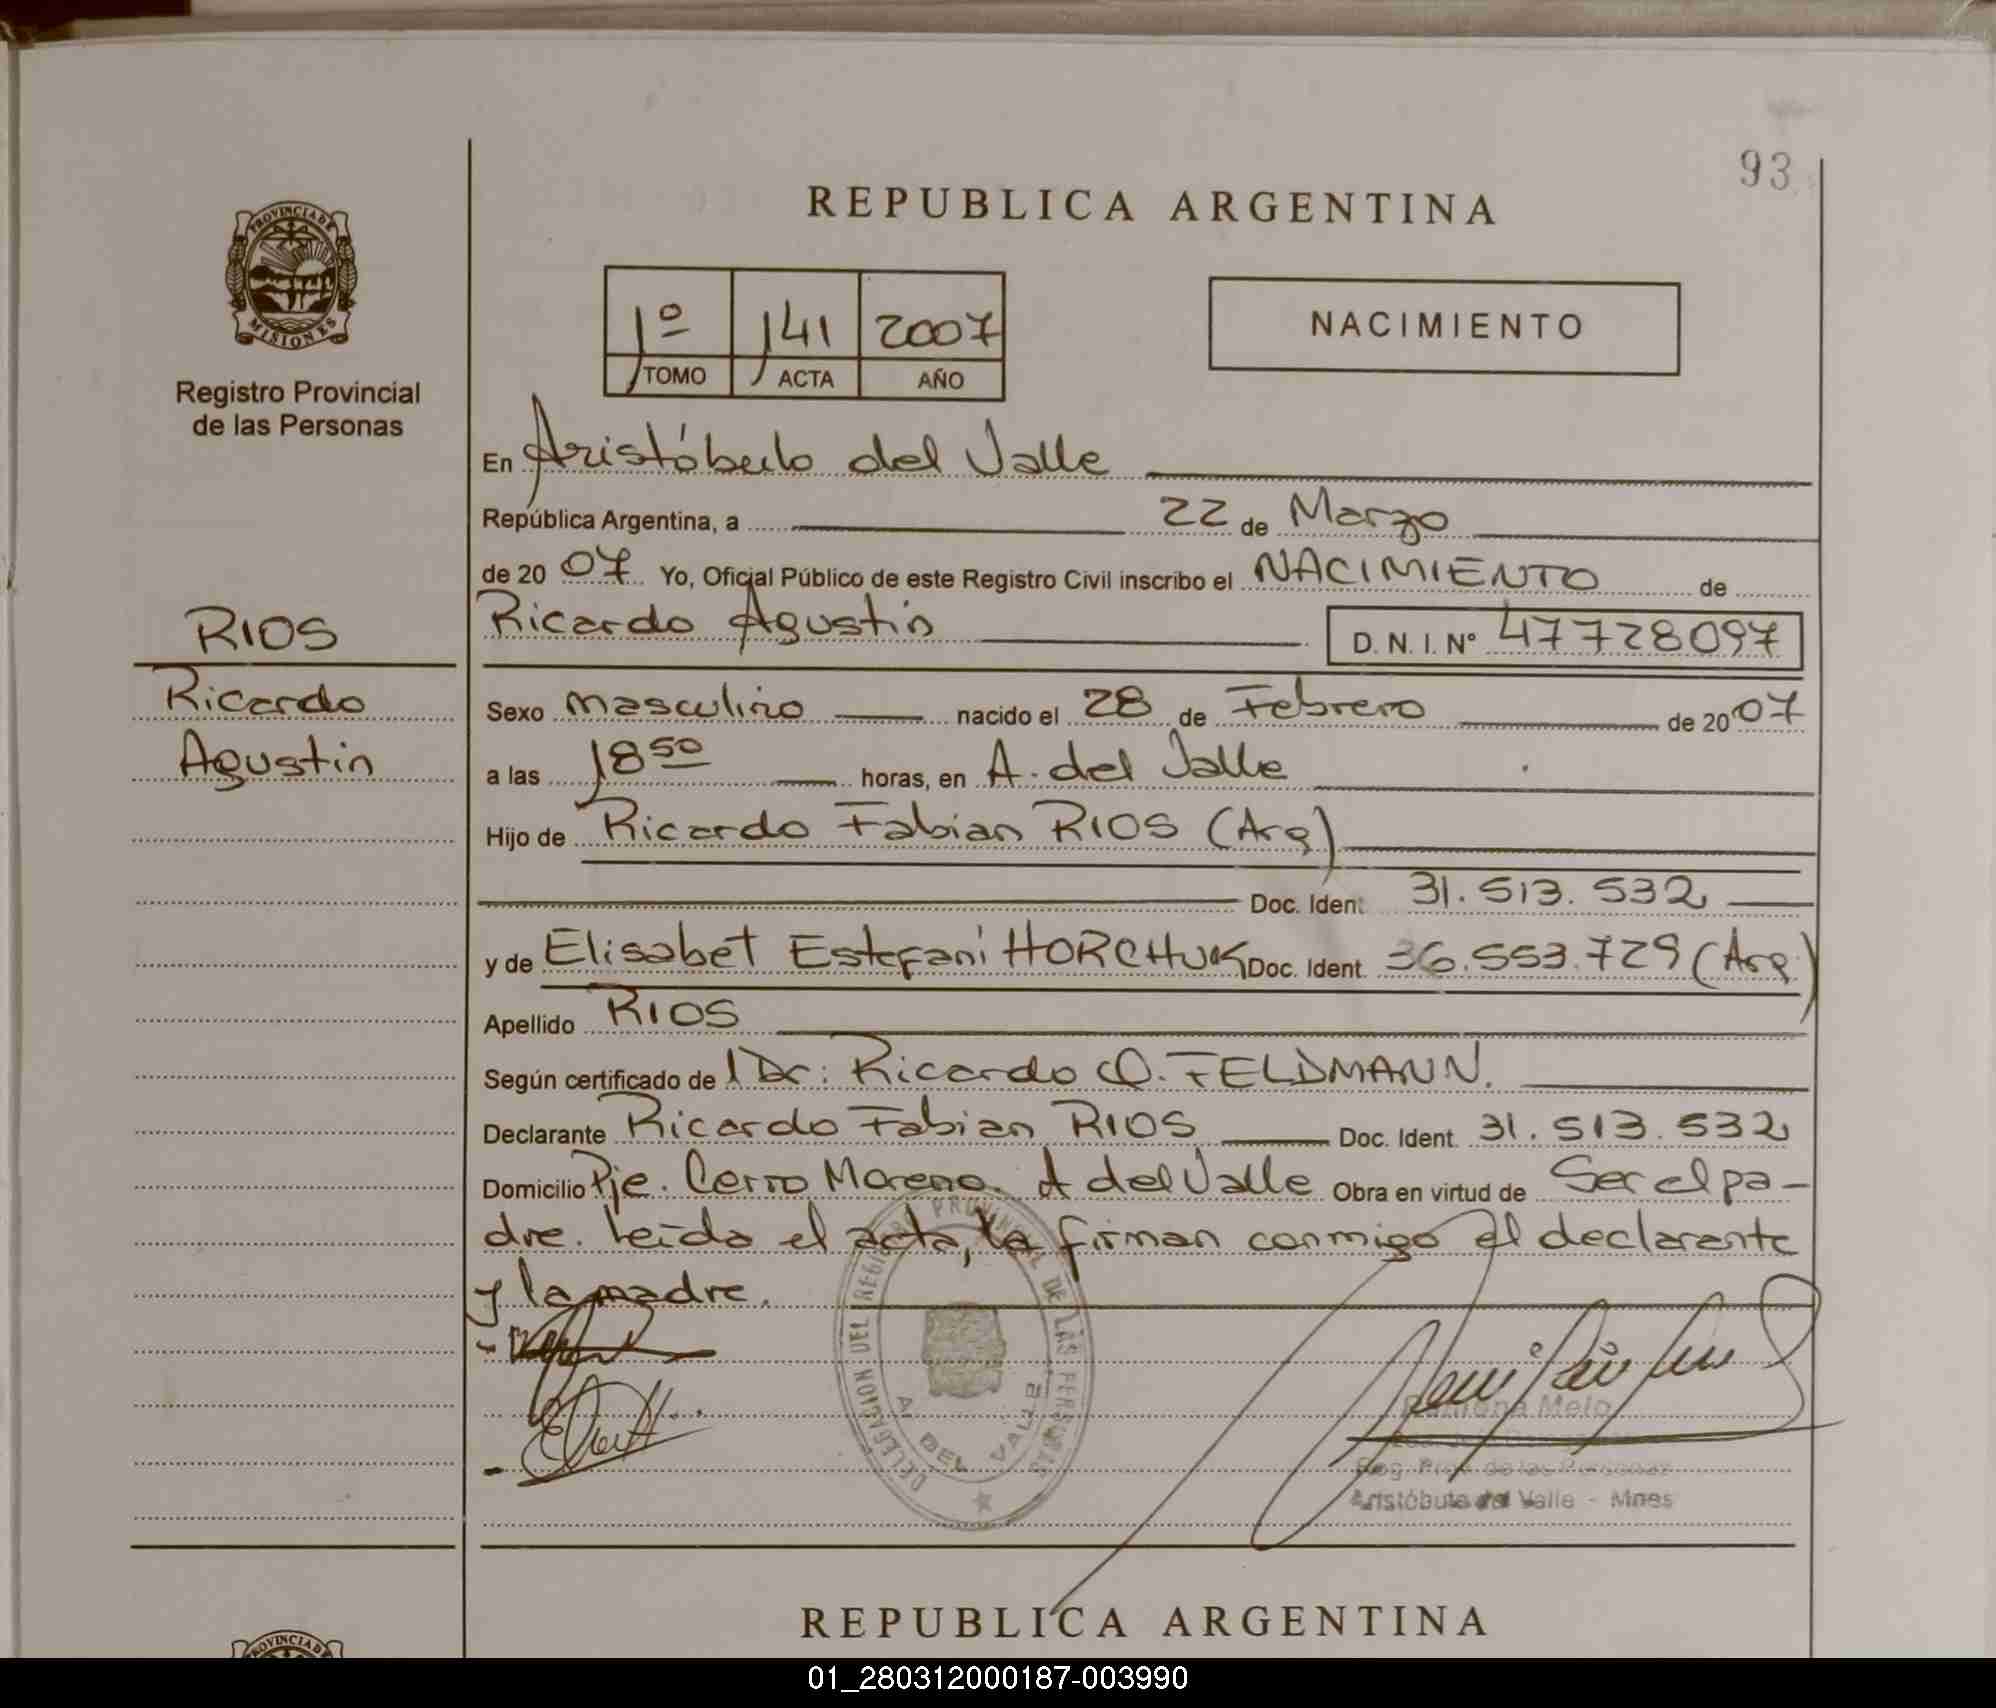 93
REPUBLICA ARGENTINA
PROVINCIA DE
MISIONES
Registro Provincial
de las Personas
1º 141 2007
TOMO ACTA AÑO
NACIMIENTO
En Aristóbulo del Valle
República Argentina, a 22 de Marzo
de 20 07 Yo, Oficial Público de este Registro Civil inscribo el NACIMIENTO de
RIOS
Ricardo Agustin D. N. I. Nº 47728097
Ricardo
Sexo masculino nacido el 28 de Febrero de 20 07
Agustin
a las 18 50 horas, en A. del Valle
Hijo de Ricardo Fabian RIOS (Arg)
Doc. Ident 31.513.532
y de Elisabet Estefani HORCHUK Doc. Ident. 36.553.729 (Arg)
Apellido RIOS
Según certificado de Dr: Ricardo O. FELDMANN.
Declarante Ricardo Fabian RIOS Doc. Ident. 31.513.532
Domicilio Pje. Cerro Moreno. A del Valle Obra en virtud de Ser el pa-
dre. Leida el acta, la firman conmigo el declarante
y la madre.
DELEGACION DEL REGISTRO PROVINCIAL DE LAS PERSONAS
A. DEL VALLE
Ramona Melo
Reg. Prov. de las Personas
Aristóbulo del Valle - Mnes
REPUBLICA ARGENTINA
PROVINCIA DE
01_280312000187-003990